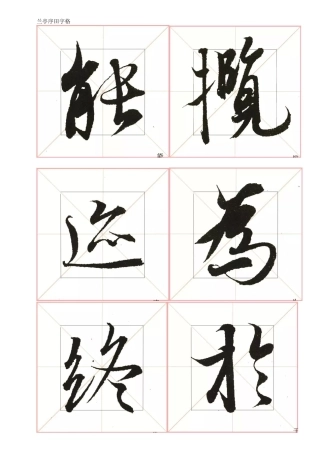 兰亭序印字格
能攬
迹為
終於